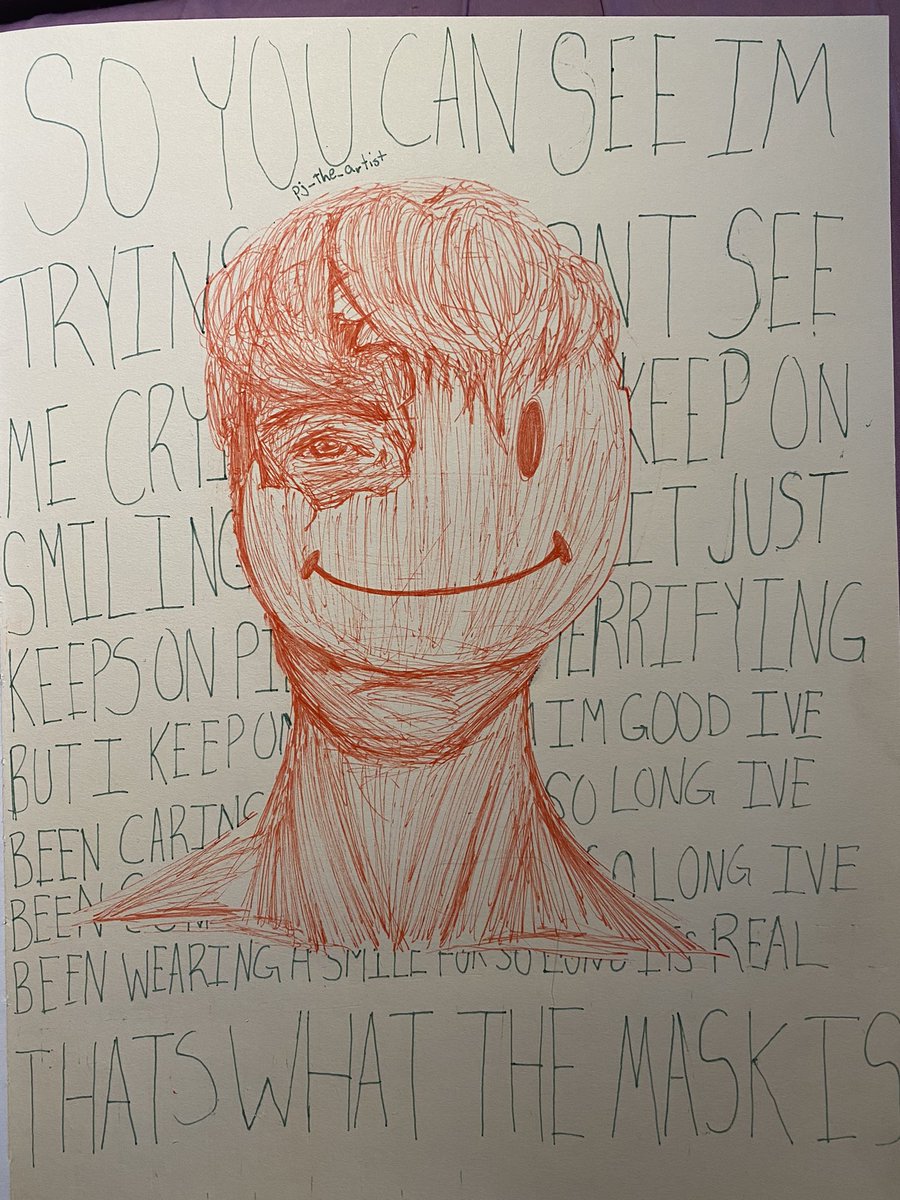 SO YOU CAN SEE IM
pj_the_artist
TRYING SEE
ME KEEP ON
SMILING IT JUST
KEEPS ON TERRIFYING
BUT I KEEP ON IM GOOD IVE
BEEN CARING SO LONG IVE
BEEN SO LONG IVE
BEEN WEARING A SMILE FOR SO LONG ITS REAL
THATS WHAT THE MASK IS